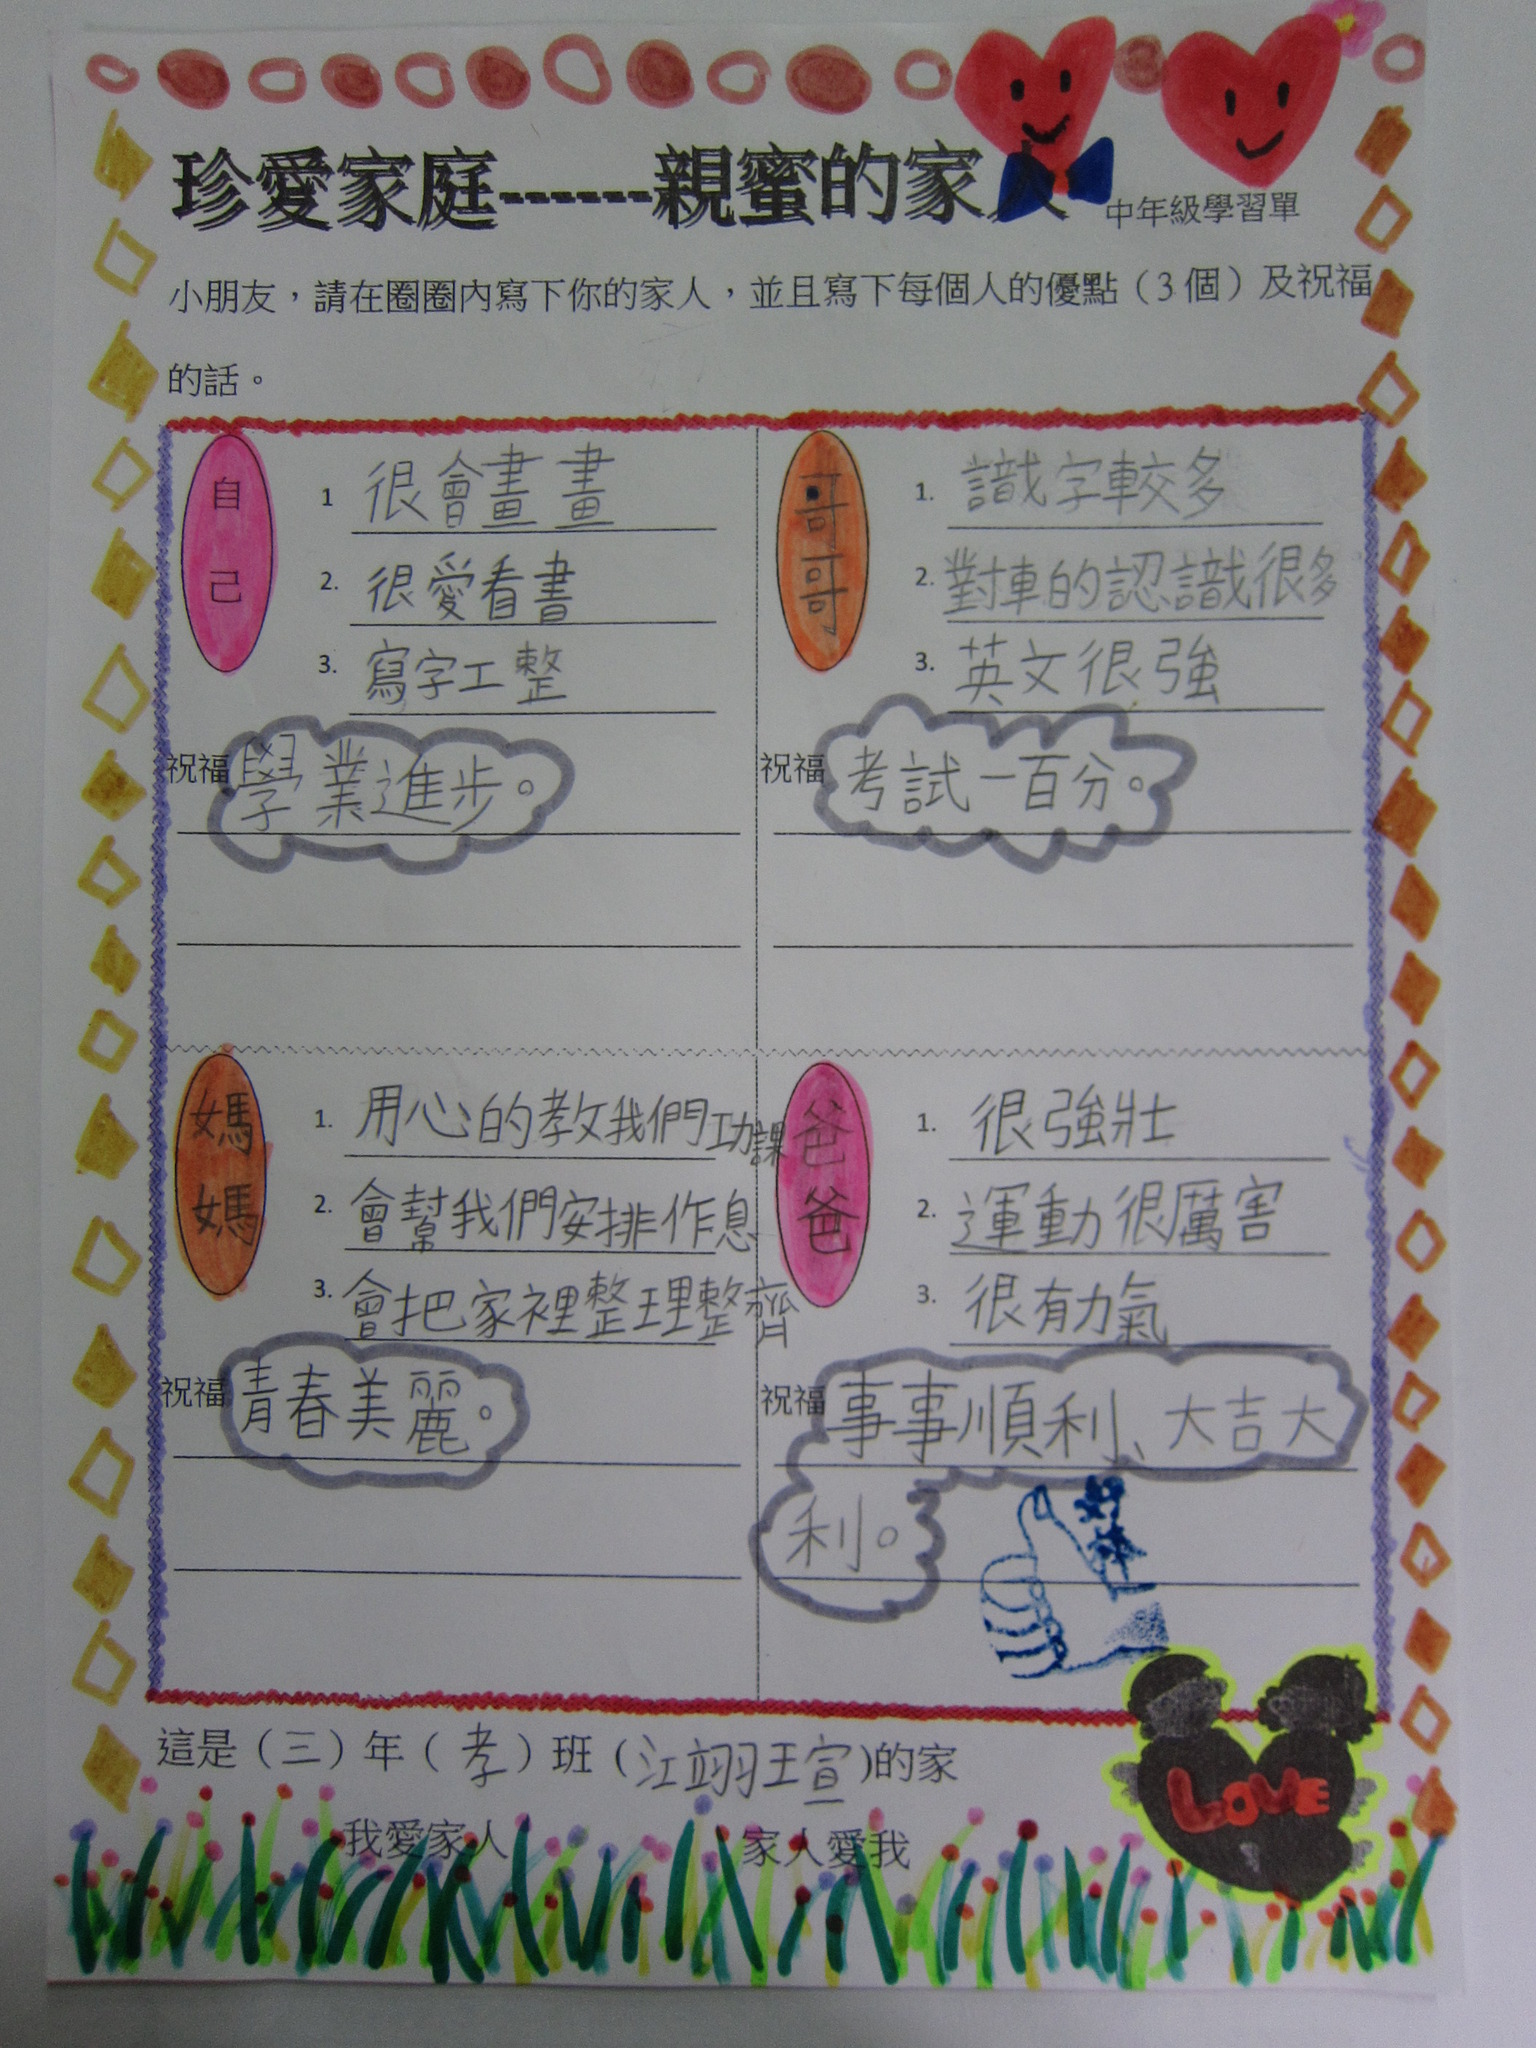 珍愛家庭------親蜜的家人
中年級學習單
小朋友，請在圈圈內寫下你的家人，並且寫下每個人的優點（3個）及祝福
的話。
自己
1 很會畫畫
2. 很愛看書
3. 寫字工整
祝福 學業進步。
哥哥
1. 識字較多
2. 對車的認識很多
3. 英文很強
祝福 考試一百分。
媽媽
1. 用心的教我們功課
2. 會幫我們安排作息
3. 會把家裡整理整齊
祝福 青春美麗。
爸爸
1. 很強壯
2. 運動很厲害
3. 很有力氣
祝福 事事順利、大吉大
利。
好棒
這是（三）年（孝）班（江翊瑄)的家
LOVE
我愛家人 家人愛我